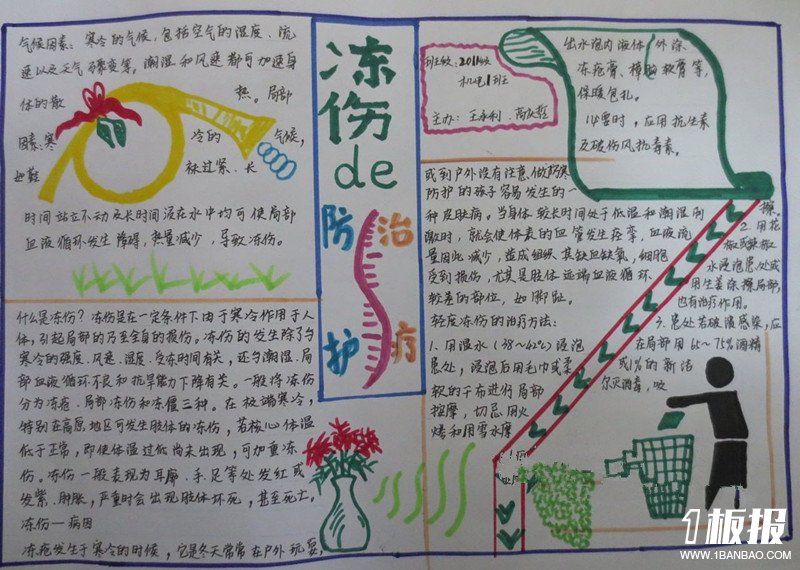 气候因素：寒冷的气候，包括空气的湿度、流
速以及天气骤变等。潮湿和风速都可加速身
体的散热。局部
因素：寒冷的气候，
如鞋袜过紧、长
时间站立不动及长时间浸在水中均可使局部
血液循环发生障碍，热量减少，导致冻伤。
什么是冻伤？冻伤是在一定条件下由于寒冷作用于人
体，引起局部的乃至全身的损伤。冻伤的发生除了与
寒冷的强度、风速、湿度、受冻时间有关，还与潮湿、局
部血液循环不良和抗旱能力下降有关。一般将冻伤
分为冻疮、局部冻伤和冻僵三种。在极端寒冷，
特别在高原地区可发生肢体的冻伤，若核心体温
低于正常，即使体温过低尚未出现，可加重冻
伤。冻伤一般表现为耳廓、手、足等处发红或
发紫、肿胀，严重时会出现肢体坏死，甚至死亡。
冻伤—病因
冻疮发生于寒冷的时候，它是冬天常常在户外玩耍，
冻伤
de
防治
护疗
班级：2011级
机电1班
主办：王永利
出水泡内液体，外涂
冻疮膏、樟脑软膏等，
保暖包扎。
必要时，应用抗生素
及破伤风抗毒素。
或到户外没有注意做防寒
防护的孩子容易发生的一
种皮肤病。当身体较长时间处于低温和潮湿刺
激时，就会使体表的血管发生痉挛，血液流
量因此减少，造成组织缺血缺氧，细胞
受到损伤，尤其是肢体远端血液循环
较差的部位，如脚趾。
轻度冻伤的治疗方法：
1.用温水（38~42℃）浸泡
患处，浸泡后用毛巾或柔
软的干布进行局部
按摩，切忌用火
烤和用雪水摩
擦。
2.用花
椒或辣椒
水浸泡患处或
用生姜涂擦局部，
也有治疗作用。
3.患处若破溃感染，应
在局部用65~75%酒精
或1%的新洁
尔灭消毒，吸
1板报
WWW.1BANBAO.COM